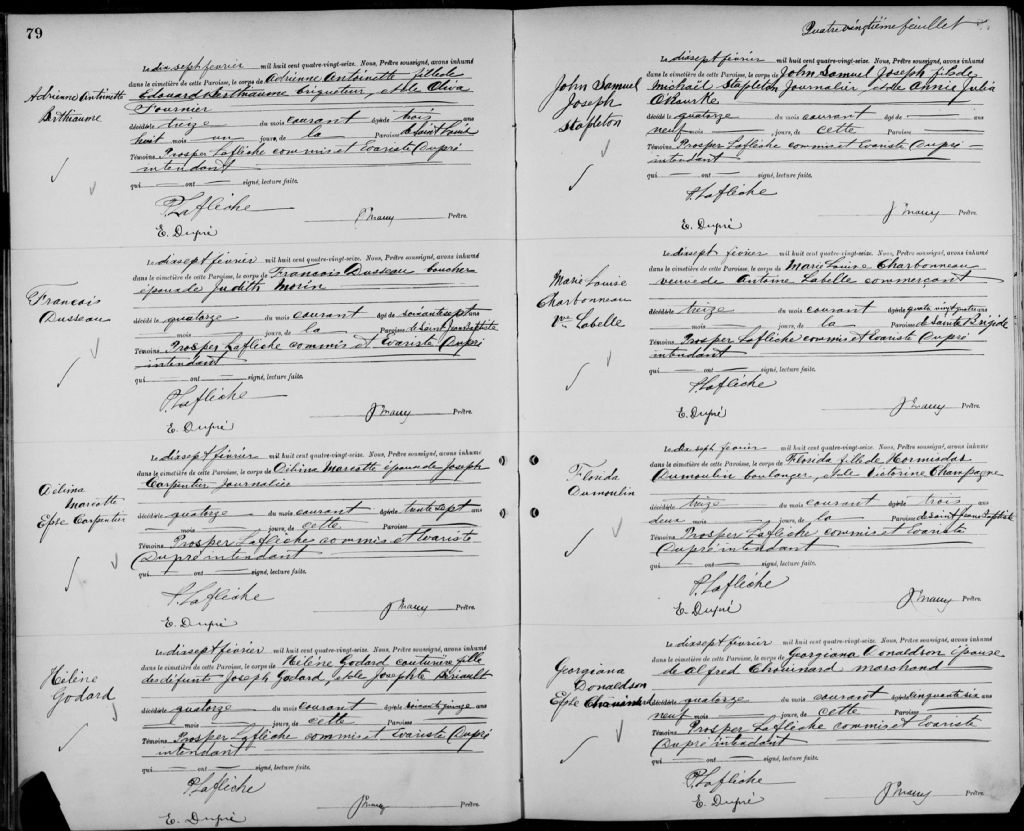 79
Adrienne Antoinette
Berthiaume
Le dix sept février mil huit cent quatre-vingt-seize. Nous, Prêtre soussigné, avons inhumé
dans le cimetière de cette Paroisse, le corps de Adrienne Antoinette fille de
Edouard Berthiaume briqueteur, et de Oliva
Fournier
décédé le treize du mois courant âgé de trois ans
huit mois un jours, de la Paroisse de Saint Louis
Témoins Prosper Laflèche commis et Evariste Dupré
intendant
qui — ont — signé, lecture faite.
P. Laflèche
Prêtre.
E. Dupré
François
Dusseau
Le dixsept février mil huit cent quatre-vingt-seize. Nous, Prêtre soussigné, avons inhumé
dans le cimetière de cette Paroisse, le corps de Francois Dusseau boucher
époux de Judith Morin
décédé le quatorze du mois courant âgé de soixante sept ans
— mois — jours, de la Paroisse de Saint Jean Baptiste
Témoins Prosper Laflèche commis et Evariste Dupré
intendant
qui — ont — signé, lecture faite.
P. Laflèche
Prêtre.
E. Dupré
Délima
Marcotte
Epse Carpentier
Le dixsept février mil huit cent quatre-vingt-seize. Nous, Prêtre soussigné, avons inhumé
dans le cimetière de cette Paroisse, le corps de Délima Marcotte épouse de Joseph
Carpentier Journalier
décédé le quatorze du mois courant âgé de trente sept ans
— mois — jours, de cette Paroisse
Témoins Prosper Laflèche commis et Evariste
Dupré intendant
qui — ont — signé, lecture faite.
P. Laflèche
Prêtre.
E. Dupré
Hélène
Godard
Le dixsept février mil huit cent quatre-vingt-seize. Nous, Prêtre soussigné, avons inhumé
dans le cimetière de cette Paroisse, le corps de Hélène Godard couturière fille
des défunts Joseph Godard, et de Josephte
décédé le quatorze du mois courant âgé de soixante quinze ans
— mois — jours, de cette Paroisse
Témoins Prosper Laflèche commis et Evariste Dupré
intendant
qui — ont — signé, lecture faite.
P. Laflèche
Prêtre.
E. Dupré
Quatre vingtième feuillet
John Samuel
Joseph
Stapleton
Le dixsept février mil huit cent quatre-vingt-seize. Nous, Prêtre soussigné, avons inhumé
dans le cimetière de cette Paroisse, le corps de John Samuel Joseph fils de
Michaël Stapleton Journalier, et de Annie Julia
O'Rourke
décédé le quatorze du mois courant âgé de — ans
neuf mois — jours, de cette Paroisse
Témoins Prosper Laflèche commis et Evariste Dupré
intendant
qui — ont — signé, lecture faite.
P. Laflèche
Prêtre.
E. Dupré
Marie Louise
Charbonneau
Vve Labelle
Le dixsept février mil huit cent quatre-vingt-seize. Nous, Prêtre soussigné, avons inhumé
dans le cimetière de cette Paroisse, le corps de Marie Louise Charbonneau
veuve de Antoine Labelle commerçant
décédé le treize du mois courant âgé de quatre vingt quatre ans
— mois — jours, de la Paroisse de Sainte Brigide
Témoins Prosper Laflèche commis et Evariste Dupré
intendant
qui — ont — signé, lecture faite.
P. Laflèche
Prêtre.
E. Dupré
Florida
Dumoulin
Le dix sept février mil huit cent quatre-vingt-seize. Nous, Prêtre soussigné, avons inhumé
dans le cimetière de cette Paroisse, le corps de Florida fille de Hormisdas
Dumoulin boulanger, et de Victorine Champagne
décédé le treize du mois courant âgé de trois ans
deux mois — jours, de la Paroisse de Saint Jean Baptiste
Témoins Prosper Laflèche commis et Evariste
Dupré intendant
qui — ont — signé, lecture faite.
P. Laflèche
Prêtre.
E. Dupré
Georgiana
Donaldson
Epse
Le dixsept février mil huit cent quatre-vingt-seize. Nous, Prêtre soussigné, avons inhumé
dans le cimetière de cette Paroisse, le corps de Georgiana Donaldson épouse
de Alfred Chouinard marchand
décédé le quatorze du mois courant âgé de cinquante six ans
neuf mois — jours, de cette Paroisse
Témoins Prosper Laflèche commis et Evariste
Dupré intendant
qui — ont — signé, lecture faite.
P. Laflèche
Prêtre.
E. Dupré